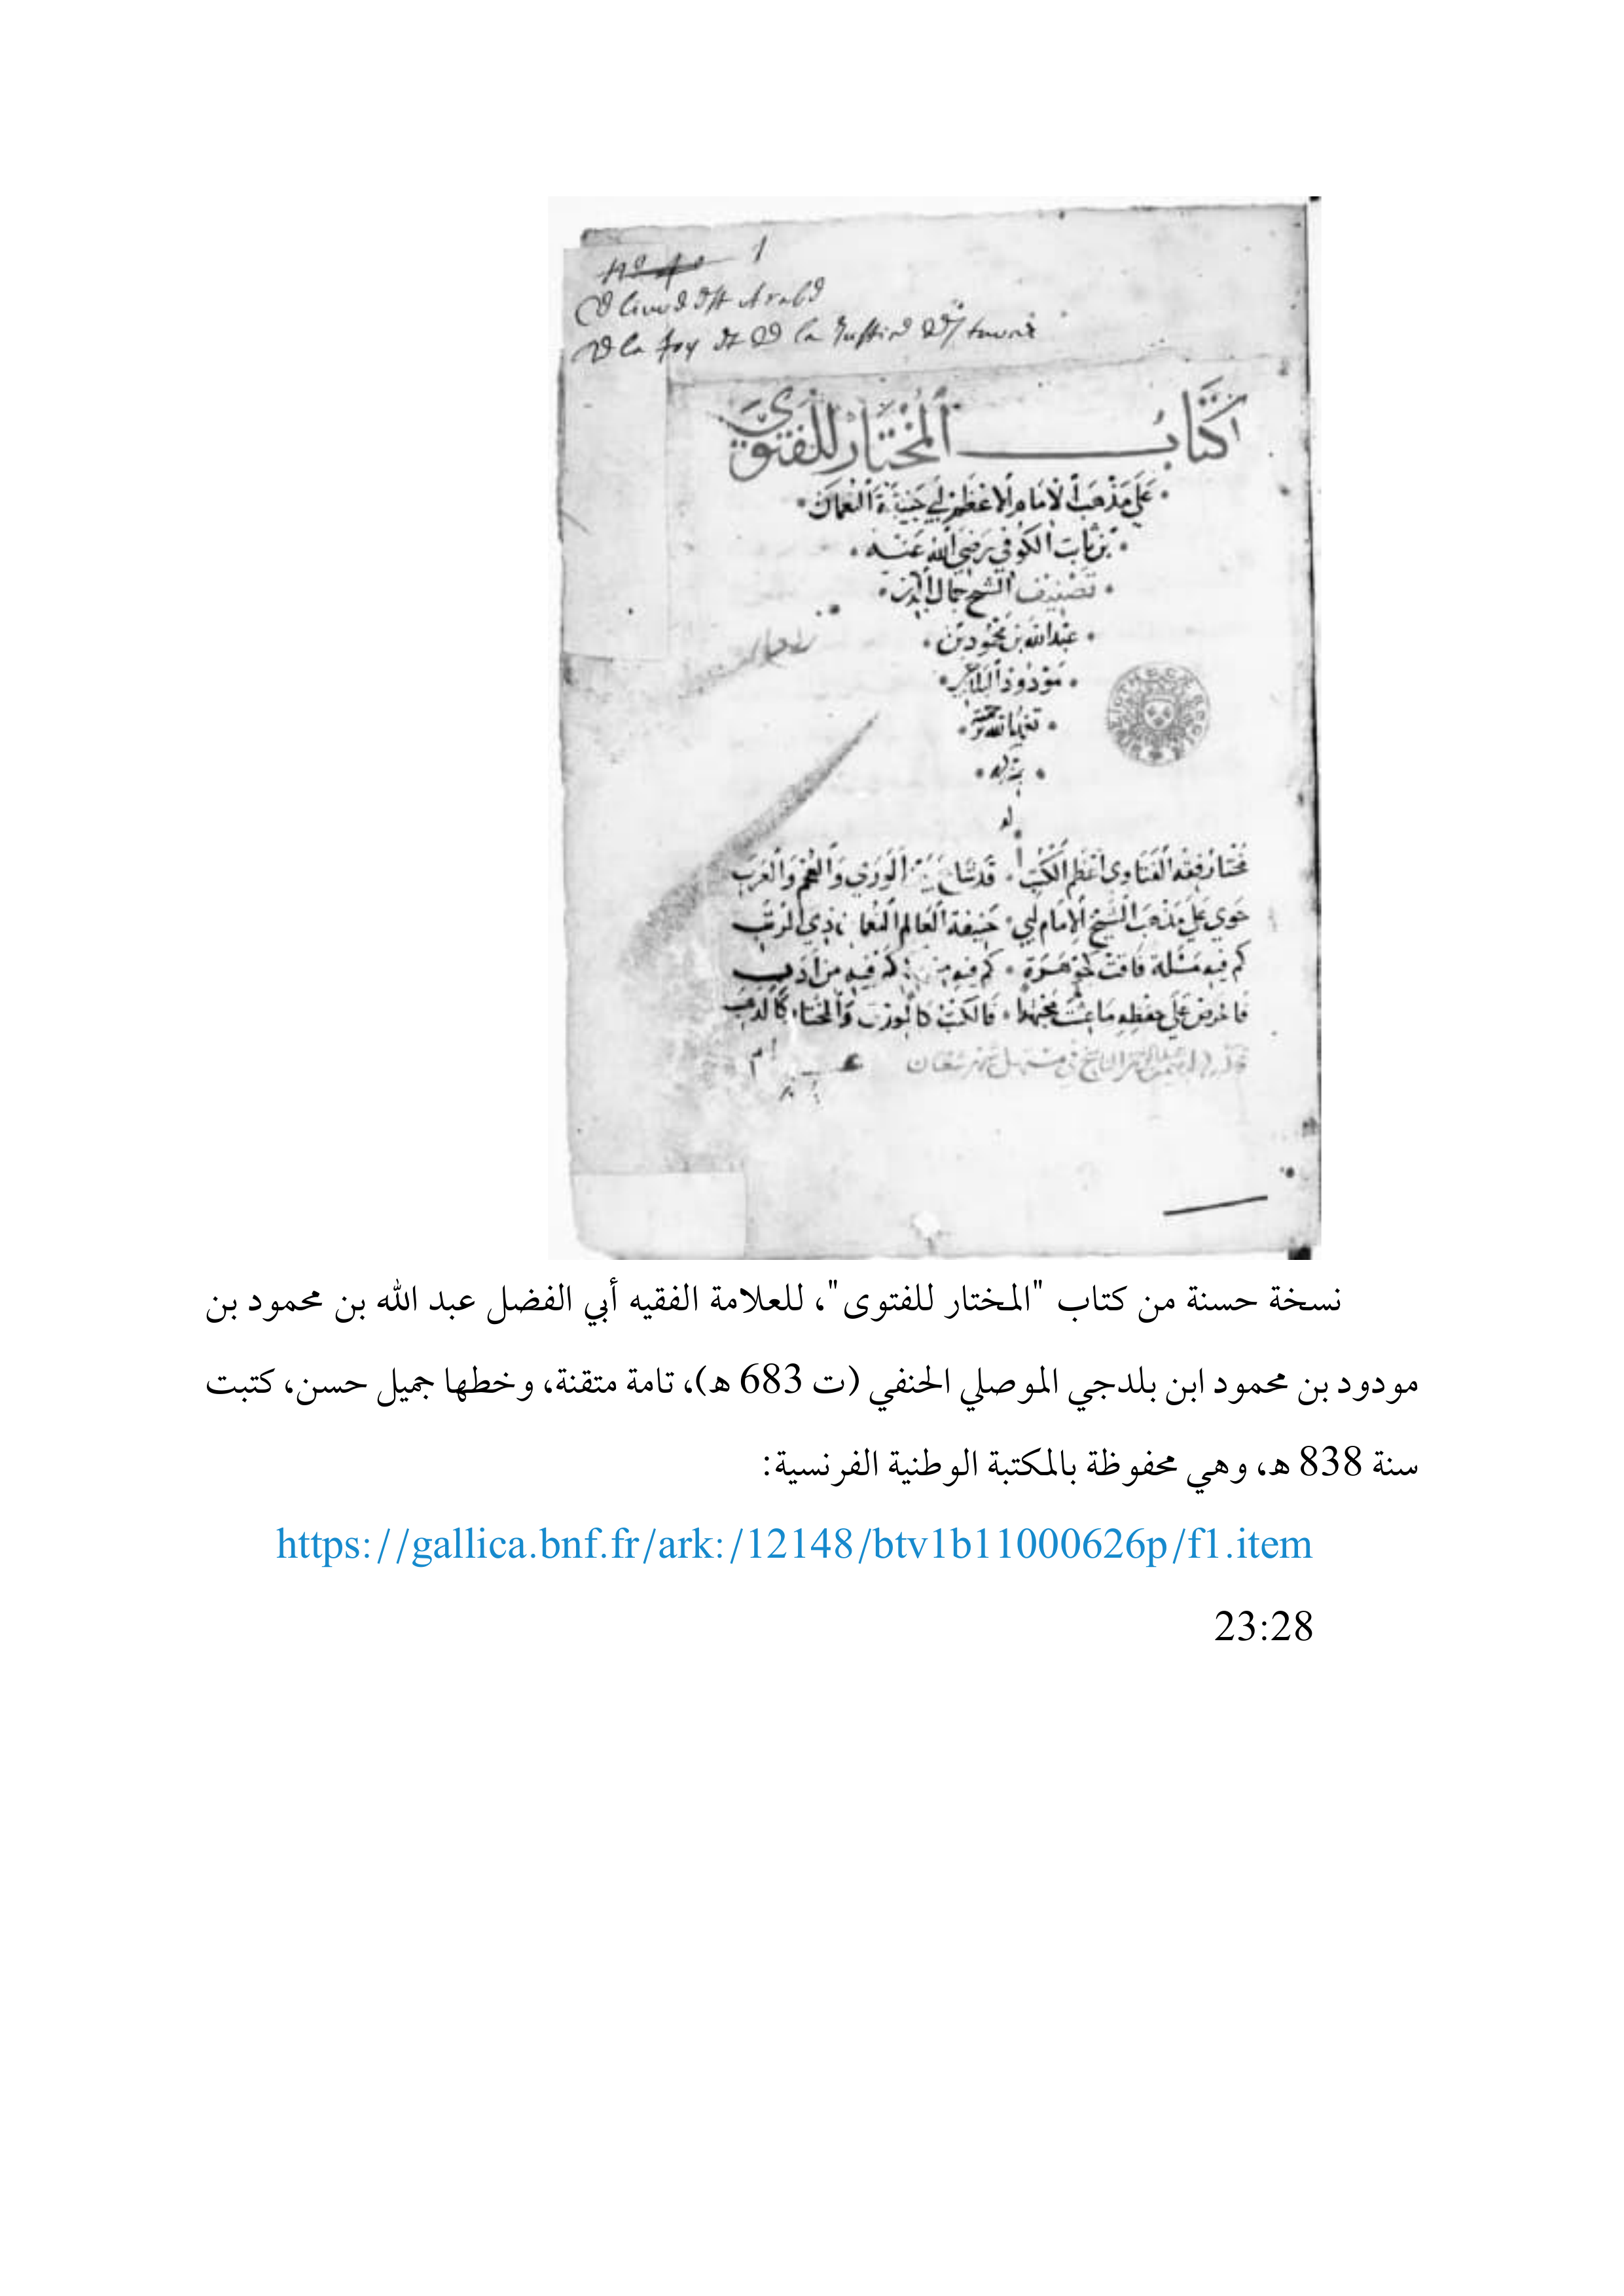 1
كتاب المختار للفتوى
على مذهب الامام الاعظم ابي حنيفة النعمان
بن ثابت الكوفي رضي الله عنه
تصنيف الشيخ جمال الدين
عبد الله بن محمود بن
مودود
تغمده الله برحمته
مختار فقه الفتاوى اعظم الكتب قد شاع بين الورى والعجم والعرب
حوى على مذهب الشيخ الامام ابي حنيفة العالم النعمان ذي الرتب
كم فيه مسئلة فاقت كجوهرة كم فيه من كم فيه من ادب
فاحرص على حفظه ما عشت مجتهدا فالكتب كالورق والمختار كالذهب
في مستهل شهر شعبان
نسخة حسنة من كتاب "المختار للفتوى"، للعلامة الفقيه أبي الفضل عبد الله بن محمود بن
مودود بن محمود ابن بلدجي الموصلي الحنفي (ت 683 هـ)، تامة متقنة، وخطها جميل حسن، كتبت
سنة 838 هـ، وهي محفوظة بالمكتبة الوطنية الفرنسية:
https://gallica.bnf.fr/ark:/12148/btv1b11000626p/f1.item
23:28